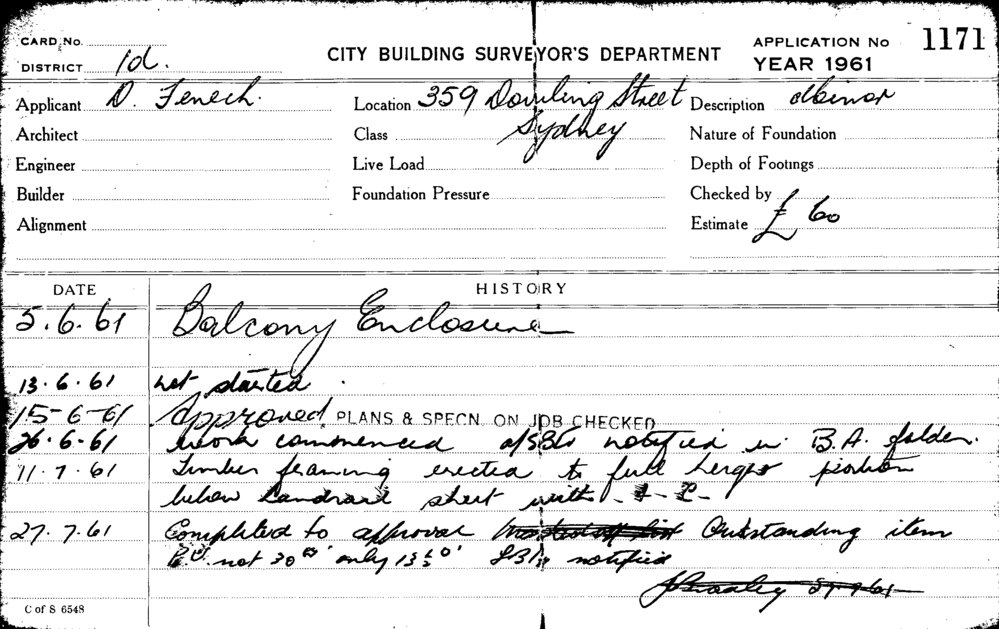 CARD No.
DISTRICT 1d.
CITY BUILDING SURVEYOR'S DEPARTMENT
APPLICATION No 1171
YEAR 1961
Applicant D. Fenech.
Location 359 Dowling Street
Sydney
Description
Architect
Class
Nature of Foundation
Engineer
Live Load
Depth of Footings
Builder
Foundation Pressure
Checked by
Alignment
Estimate £ 60
DATE HISTORY
5.6.61 Balcony Enclosure
13.6.61 not started.
15-6-61 Approved PLANS & SPECN. ON JOB CHECKED
26.6.61 Work commenced notified in B.A. folder.
11.7.61 Timber framing erected to full height portion
below sheet with
27.7.61 Completed to approval Outstanding item
not 30 only 13 notified
C of S 6548